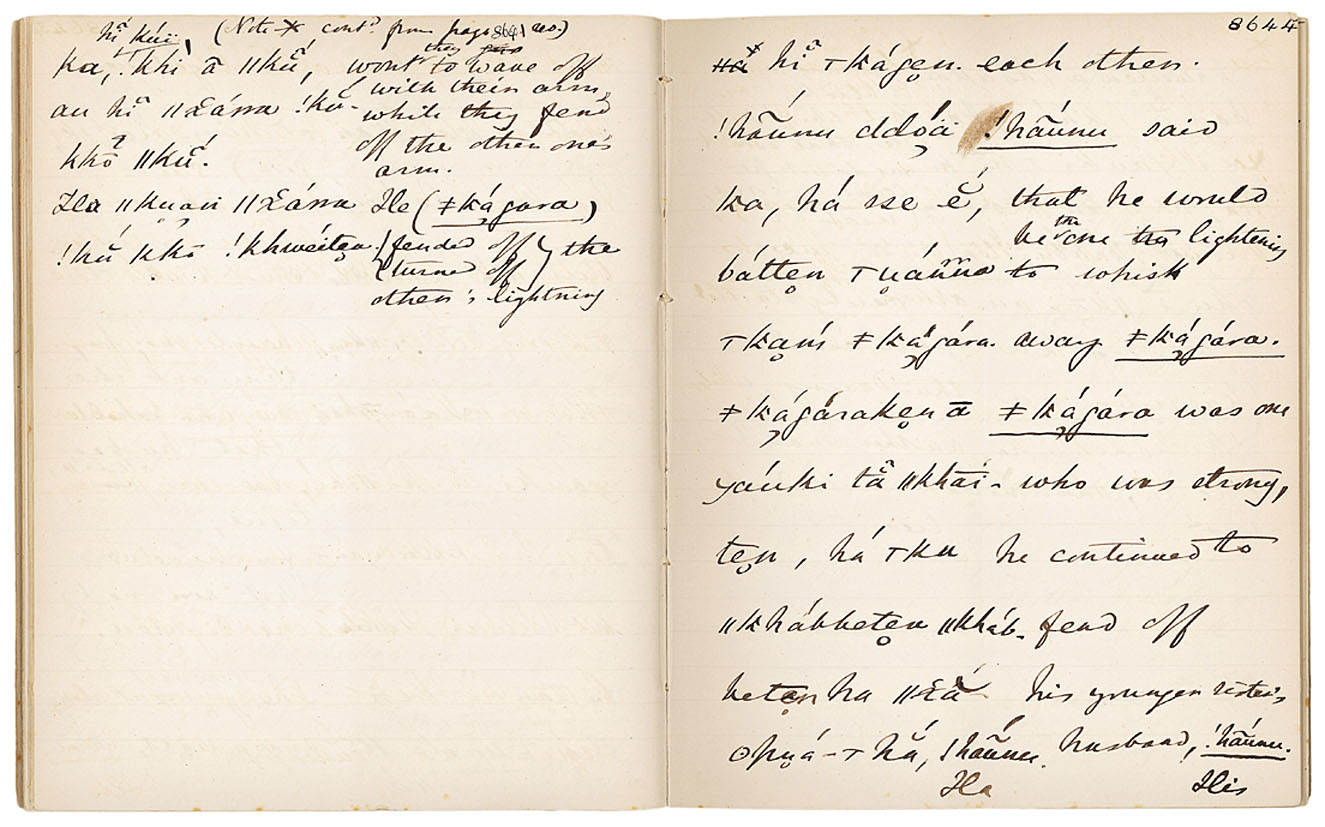 hĩ kúï, (Note ✶ cont.d from page 8641 uo.)
ka, !khi ā ǁkŭ, wont they to wave off
au hĩ ǁχárra !kŭ- with their arm,
kkō ǁkŭ. while they fend
off the other one's
arm.
Ha ǁkuaṙi ǁχárra He (ǂkágara)
!kŭ kko !khwéiten. fended off
turned off the
other's lightning
8644
hĩ ǀkágen. each other.
!hãunu ddóä !hãunu said
ka, há sse é, that he would
be the one lightening
bátten ǀuánna to whisk
ǀkaṅí ǂkágára. away ǂkágára.
ǂkágáraken ā ǂkágára was one
yáuki tã ǁkhái- who was strong,
ten, há ǀku he continued to
ǁkhábbeten ǁkháb- fend off
beten ha ǁχá- his younger sister's
ʘpuá-ǀhă, !hãunu. husband, !hãunu.
Ha His